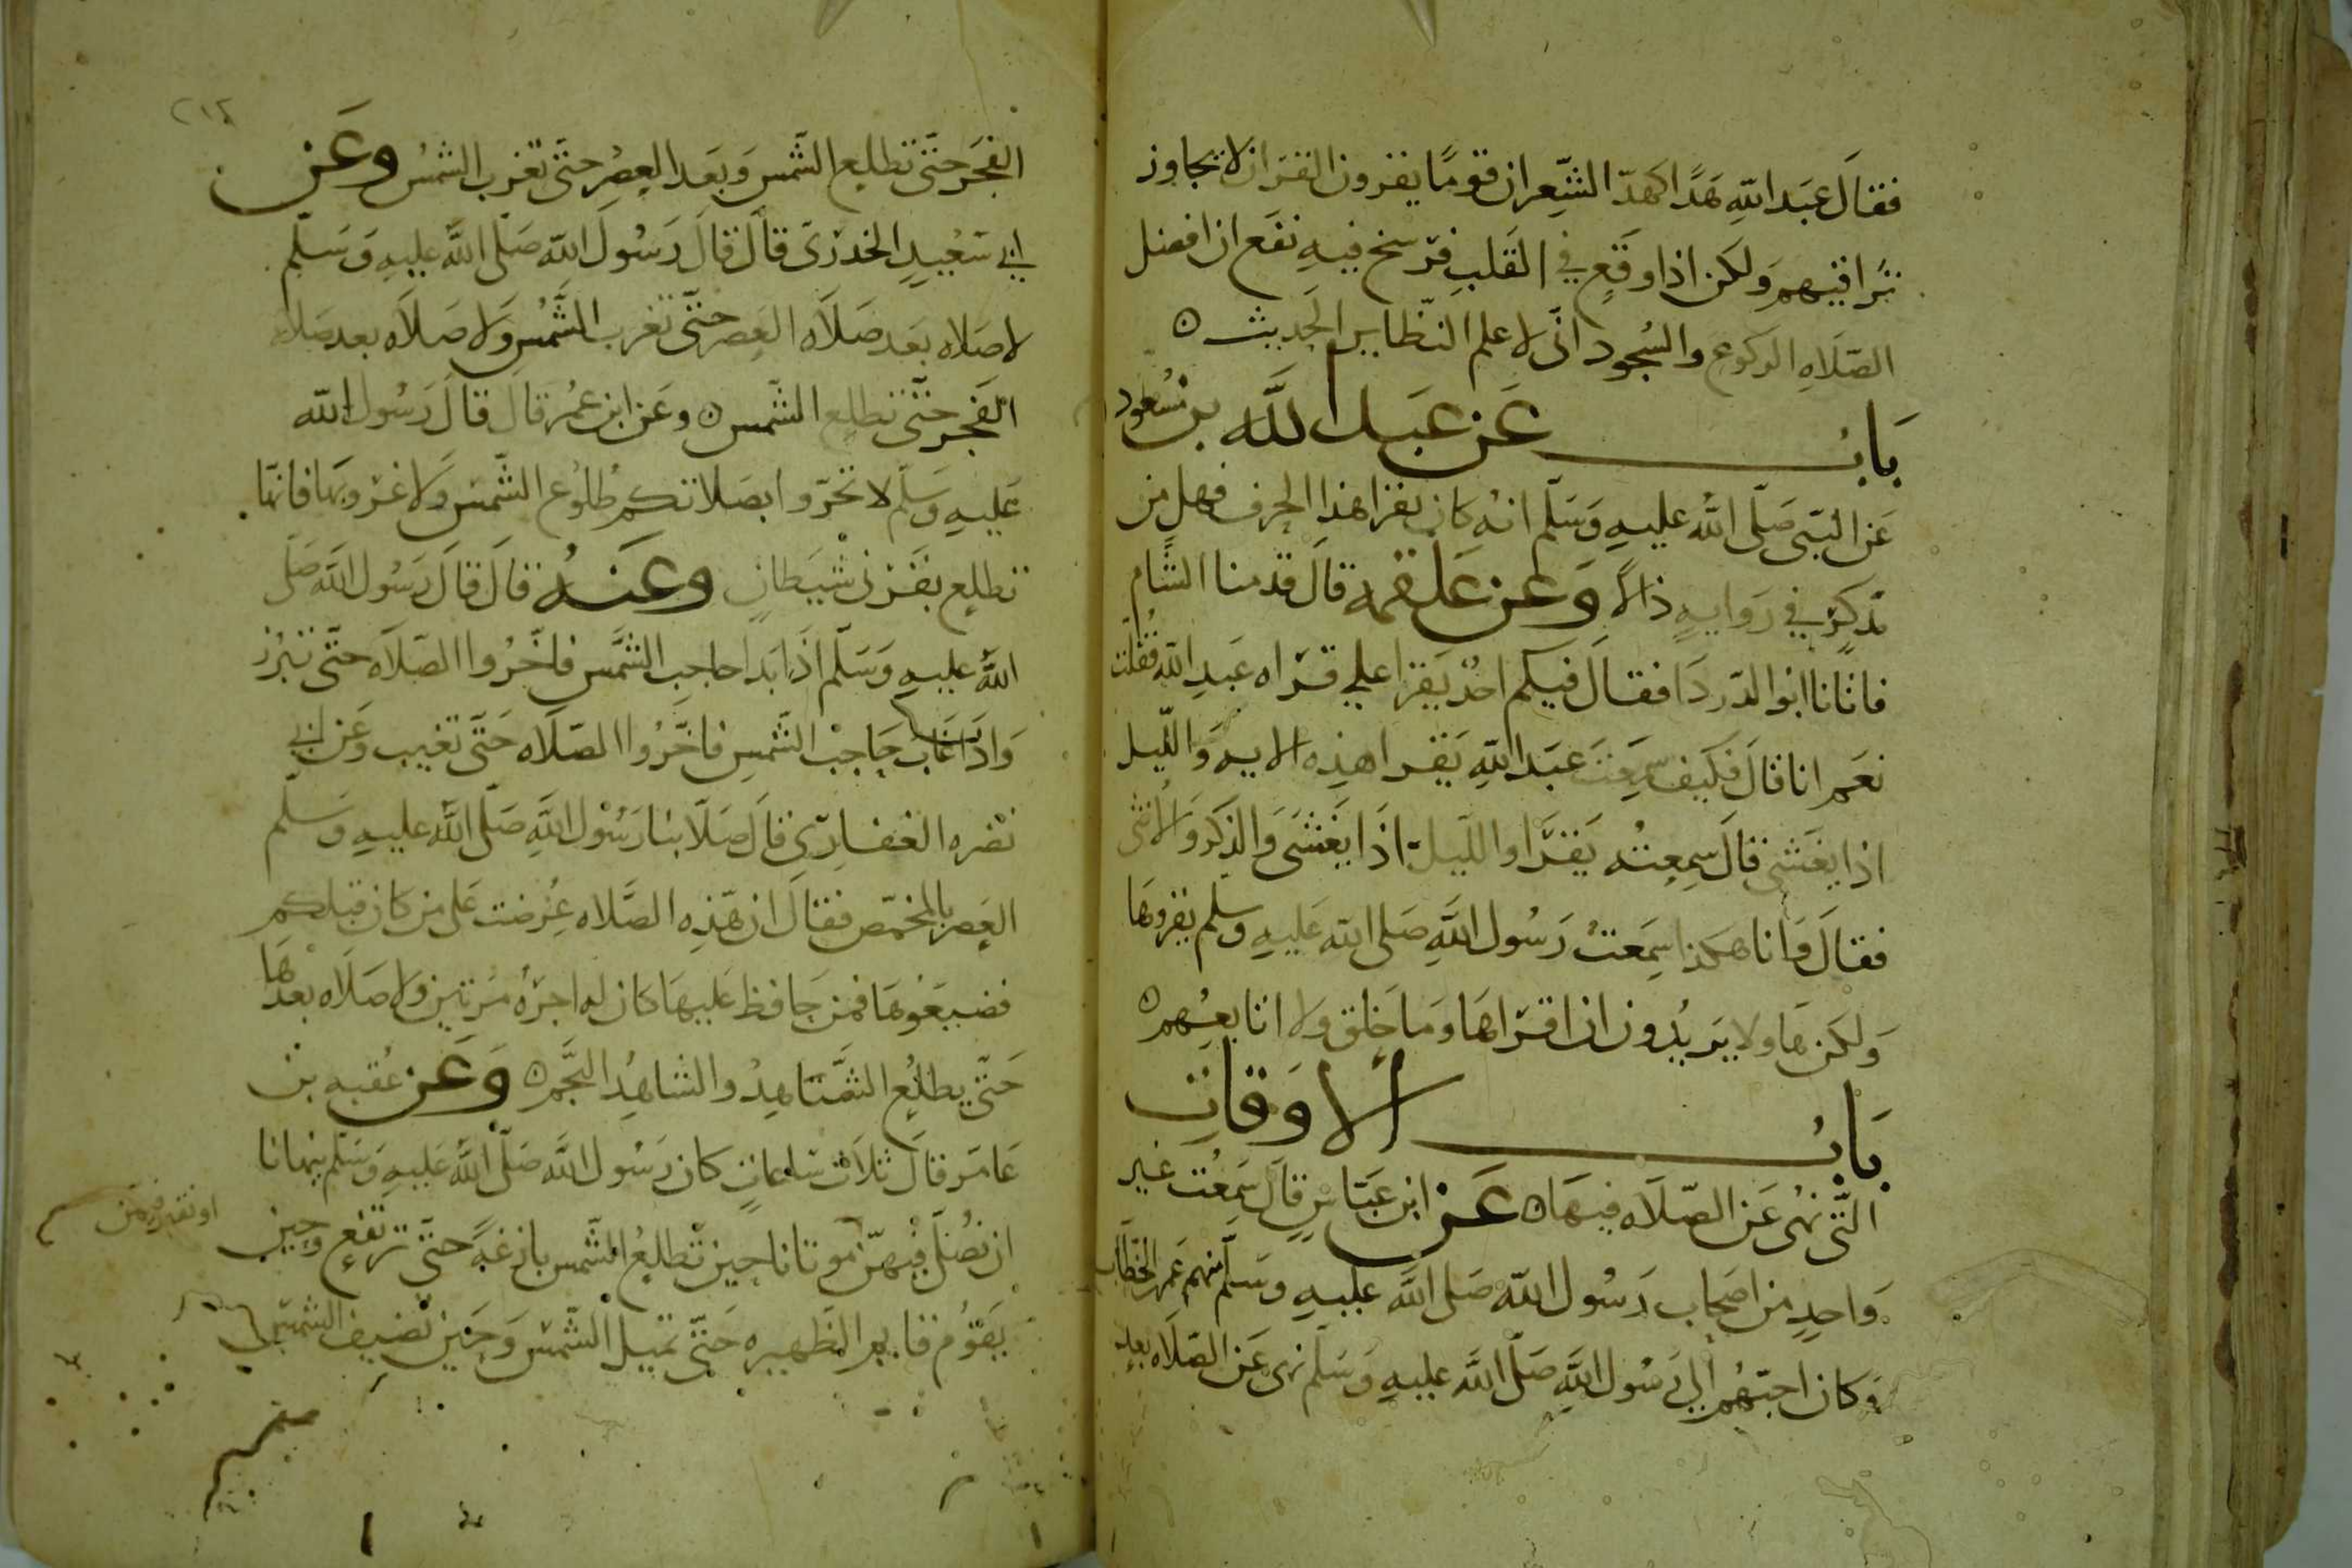 فقال عبد الله هذا كهذ الشعر ان قوما يقرون القران لا تجاوز
تراقيهم ولكن اذا وقع في القلب فرسخ فيه نفع ان افضل
الصلاه الركوع والسجود اني لاعلم النظاير الحديث ه
باب عن عبد الله بن مسعود
عن النبي صلى الله عليه وسلم انه كان يقرا هذا الحرف فهل من
مدكر في روايه ذالا وعن علقمه قال قدمنا الشام
فاتانا ابو الدردا فقال فيكم احد يقرا علي قراه عبد الله فقلت
نعم انا قال فكيف سمعت عبد الله يقرا هذه الايه والليل
اذا يغشى قال سمعته يقرا والليل اذا يغشى والذكر والانثى
فقال وانا هكذا سمعت رسول الله صلى الله عليه وسلم يقروها
ولكن هاولا يريدون ان اقراها وما خلق ولا اتابعهم ه
باب الاوقات
التي نهى عن الصلاه فيها ه عن ابن عباس قال سمعت غير
واحد من اصحاب رسول الله صلى الله عليه وسلم منهم عمر الخطاب
وكان احبهم الي رسول الله صلى الله عليه وسلم نهى عن الصلاه بعد
٢١٤
الفجر حتى تطلع الشمس وبعد العصر حتى تغرب الشمس وعن
ابي سعيد الخدري قال قال رسول الله صلى الله عليه وسلم
لا صلاه بعد صلاه العصر حتى تغرب الشمس ولا صلاه بعد صلاه
الفجر حتى تطلع الشمس ه وعن ابن عمر قال قال رسول الله
عليه وسلم لا تحروا بصلاتكم طلوع الشمس ولا غروبها فانها
تطلع بقرني شيطان وعنه قال قال رسول الله صلى
الله عليه وسلم اذا بدا حاجب الشمس فاخروا الصلاه حتى تبرز
واذا غاب حاجب الشمس فاخروا الصلاه حتى تغيب وعن ابي
نضره الغفاري قال صلا بنا رسول الله صلى الله عليه وسلم
العصر بالمخمص فقال ان هذه الصلاه عرضت على من كان قبلكم
فضيعوها فمن حافظ عليها كان له اجره مرتين ولا صلاه بعدها
حتى يطلع الشاهد والشاهد النجم ه وعن عقبه بن
عامر قال ثلاث ساعات كان رسول الله صلى الله عليه وسلم ينهانا
ان نصلي فيهن موتانا حين تطلع الشمس بازغة حتى ترتفع وحين
او نقبر فيهن
يقوم قايم الظهيره حتى تميل الشمس وحين تضيف الشمس